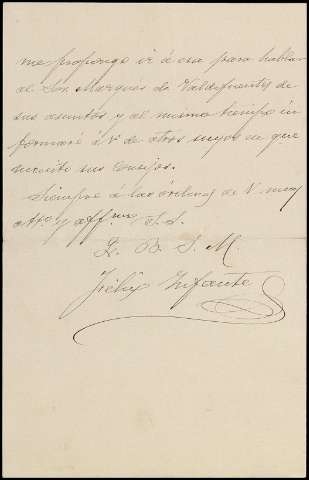 me propongo ir á esa para hablar
al Sor. Marqués de Valdefuentes de
sus asuntos y al mismo tiempo in
formaré á V. de otros suyos en que
necesito sus consejos.
Siempre á las órdenes de V. muy
atto. y affmo. S. S.
Q. B. S. M.
Félix Infante